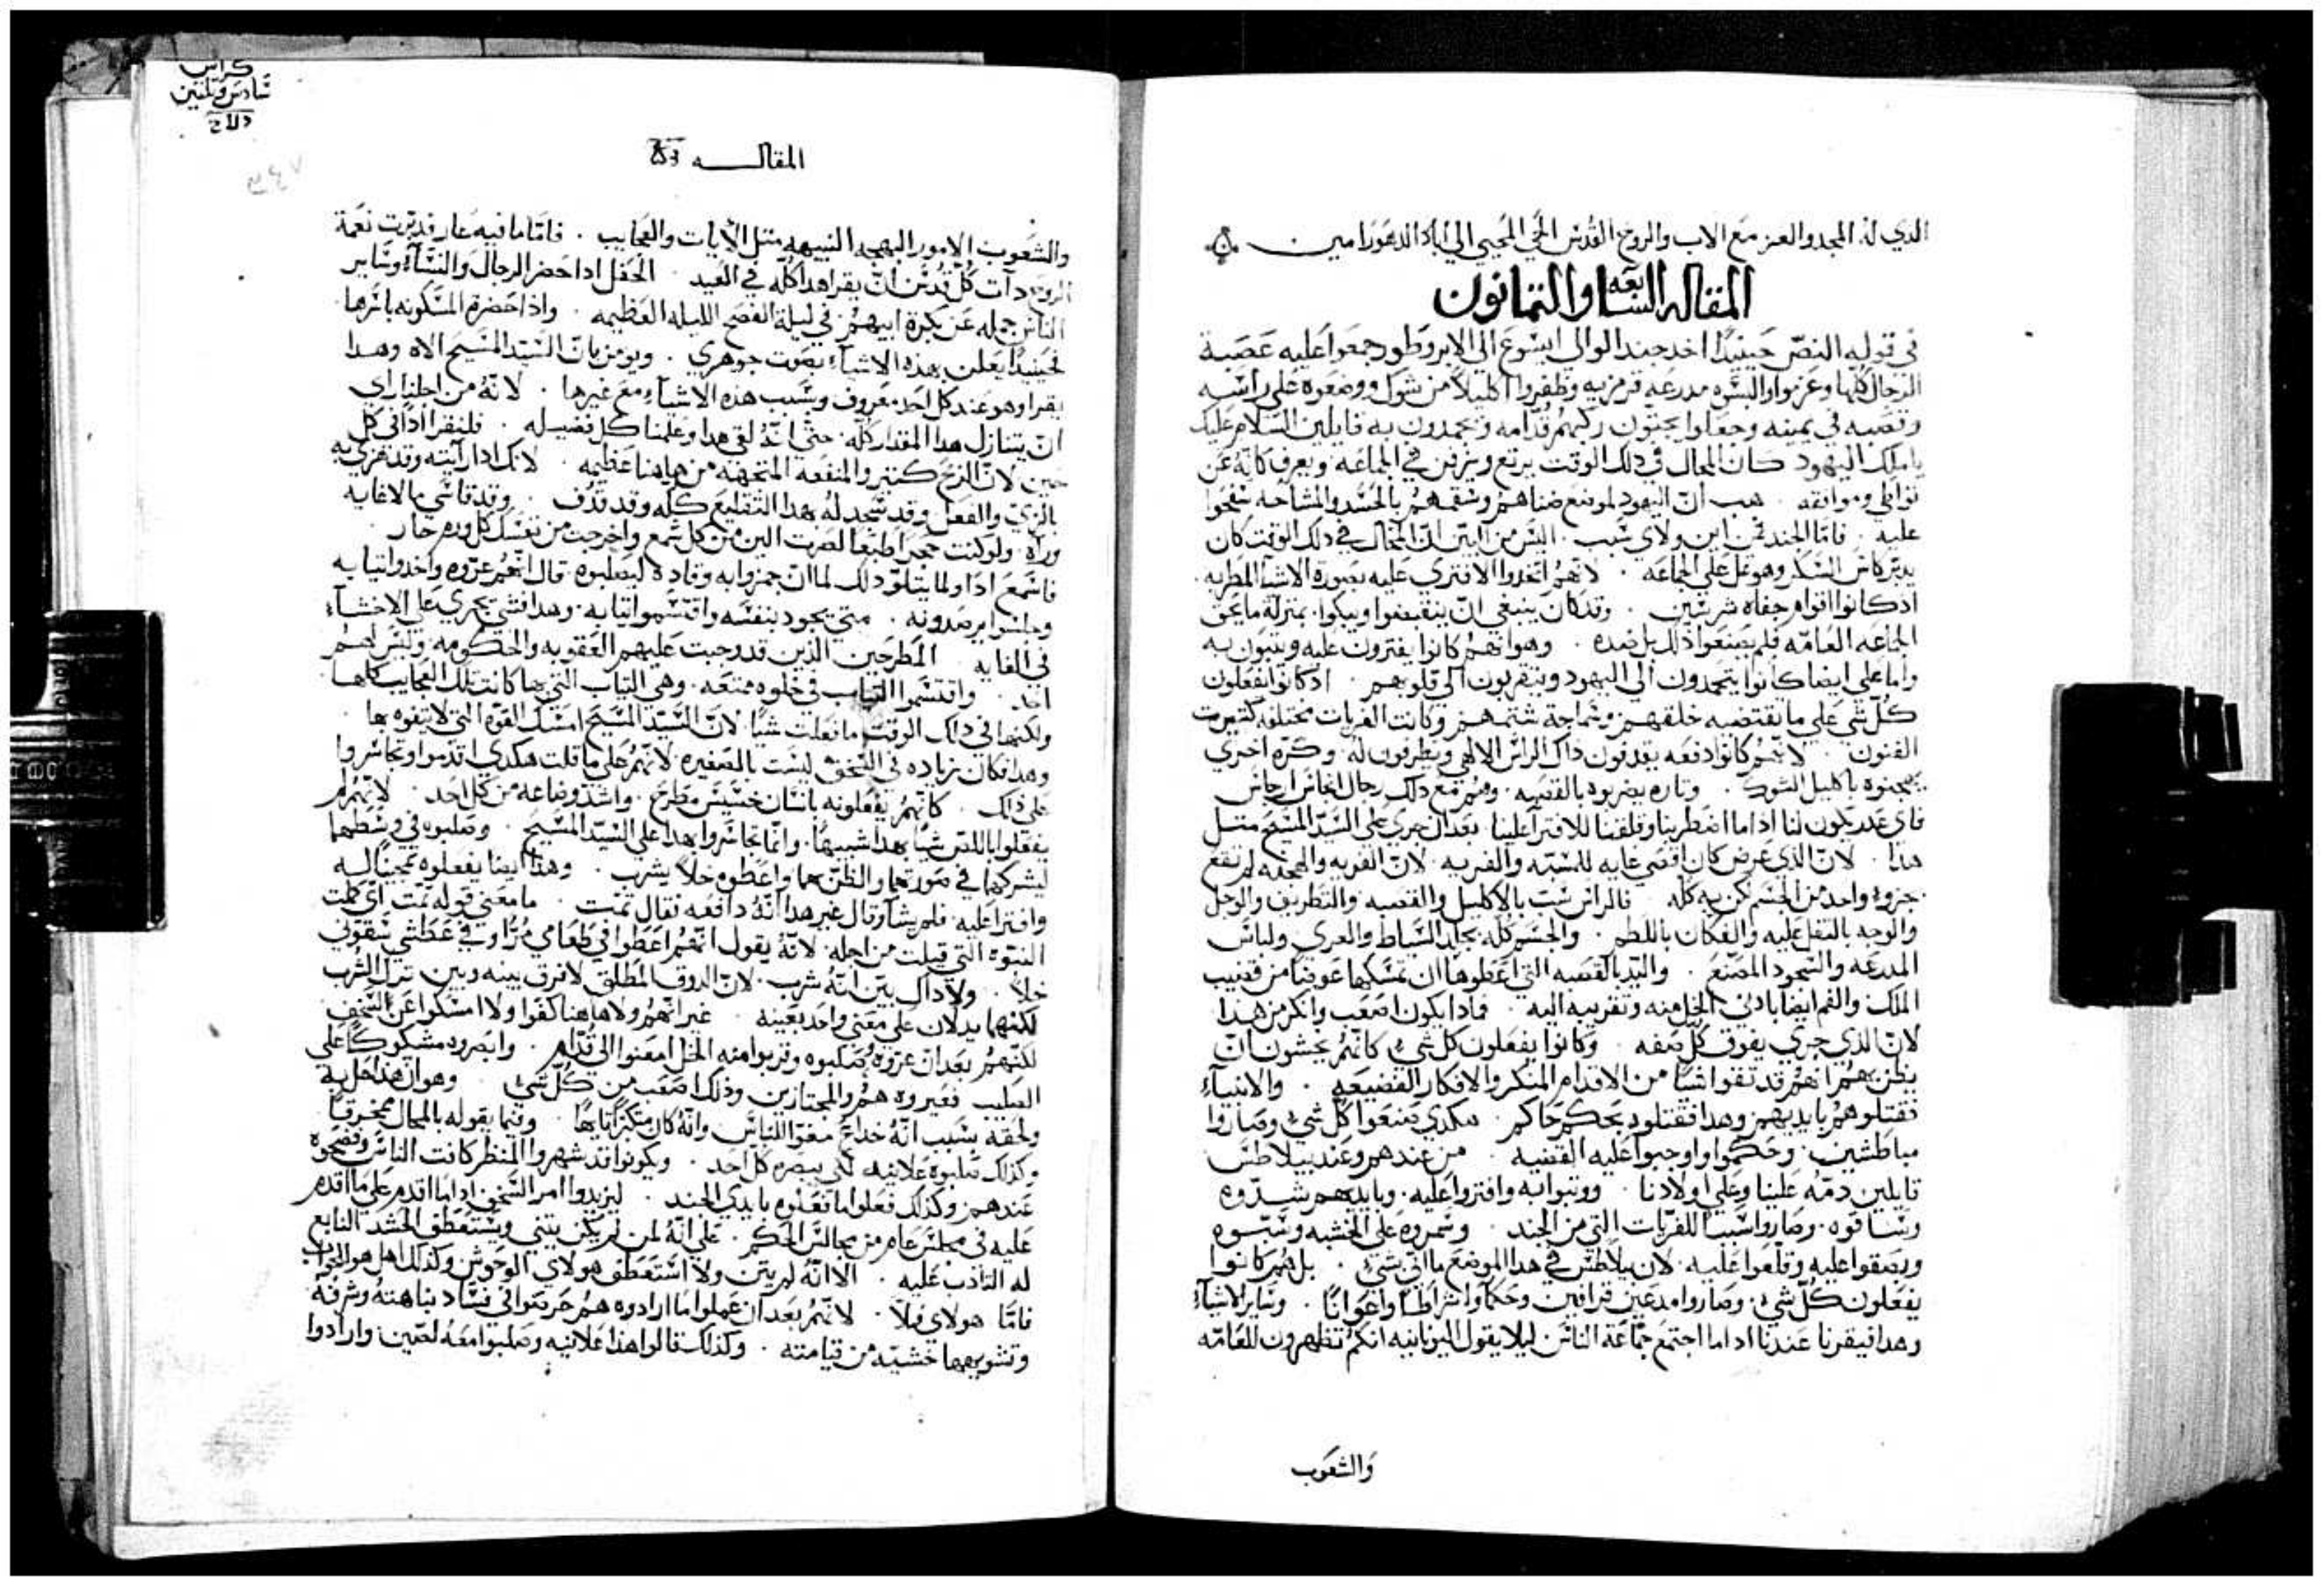 الذي له المجد والعز مع الاب والروح القدس الحي المحيي الي اباد الدهور امين
المقاله السابعه والثمانون
في قوله النص حينيدًا اخد جند الوالي ايسوع الي الابروطور وجمعوا عليه عصبة
الرجال كلها وعزوا والبسوه مدرعه قرمزيه وظفروا اكليلاً من شوك ووضعوه علي راسه
وقصبه في يمينه وجعلوا يجتون ركبهم قدامه ويحمدون به قايلين السلام عليك
يا ملك اليهود كان المحال في دلك الوقت يرتع ويزفن في الجماعه ويعرف كانه عن
تواطي وموافقه . هب ان اليهود لموضع ضناهم وسقمهم بالحسد والمشاحه سفجوا
عليه . فاما الجند فمن اين ولاي سبب . اليس من البين ان المحال في دلك الوقت كان
يدير كاس السكر وهو تمل علي الجماعه . لانهم اتخدوا الافتري عليه بصورة الاشيا المطربه
ادكانوا اقوام جفاه شرسين . وقد كان ينبغي ان ينقبضوا ويبكوا . بمنزلة ما يحق
الجماعه العامه فلم يصنعوا ذلك بل ضده . وهو انهم كانوا يفترون عليه ويتبون به
واما علي ايضا كانوا يتحمدون الي اليهود ويتقربون الي قلوبهم . ادكانوا يفعلون
كل شي علي ما يقتضيه خلقهم وسماجة شتمهم وكانت الفريات مختلفه كتيرت
الفنون . لانهم كانوا دفعه يقدفون داك الراس الالهي ويطرفون له . وكره اخري
يهجنوه باكليل الشوك . وتاره يضربوه بالقصبه . وهم مع دلك رجال انجاس ارجاس
فاي عدر يكون لنا اذا ما اضطربنا وقلقنا للافترا علينا . بعد ان جري علي السيد المسيح متل
هذا . لان الذي عرض كان اقصي غايه للسبه والفريه . لان الفريه والمحنه لم تقع
جزوء واحد من الجسم لكن به كله . فالراس شت بالاكليل والقصبه والتطريف والوجل
والوجه بالتفل عليه والفكان باللطم . والجسم كله بجلد السياط والعري ولباس
المدرعه والسجود المصنع . واليد بالقصبه التي اعطوها ان تمسكها عوضاً من قضيب
الملك والفم ايضا بادني الخل منه وتقريبه اليه . فادا يكون اصعب وانكر من هدا
لان الذي جري يفوق كل صفه . وكانوا يفعلون كل شي كانهم يخشون ان
يظن بهم انهم قد تقوا شيا من الاقدام المنكر والافكار الفضيعه . والانبياء
فقتلوهم بايديهم وهدا فقتلوه بحكم حاكم . هكدي صنعوا كل شي وصاروا
مباطشين . وحكموا واوجبوا عليه القضيه . من عندهم وعند بيلاطس
قايلين دمه علينا وعلي اولادنا . ووتبوا به وافتروا عليه . وبايديهم شدوه
وساقوه . وصاروا سبباً للفريات التي من الجند . وسمروه علي الخشبه وسبوه
وبصقوا عليه وقلعوا عليه . لان بيلاطس في هدا الموضع ما اتي بشي . بل هم كانوا
يفعلون كل شي . وصاروا مدعين قرافين وحكاماً واشراطاً واعواناً . وساير الاشياء
وهدا فيقرنا عندنا اداما اجتمع جماعة الناس ليلا يقول اليونانيه انكم تظهرون للعامه
والشعوب
كراس
سادس وتلتين
المقاله
والشعوب الامور البهجه النبيهه متل الايات والعجايب . فاما ما فيه عار فدبرت نعمة
الروح دات كل قدس ان يقرا هدا كله في العيد الحفل اداحضر الرجال والنساء وساير
الناس جمله عن بكرة ابيهم في ليلة الفصح الليله العظيمه . واذا حضرة المسكونه باسرها
فحينيدا يعلن بهذه الاشياء بصوت جوهري . ويومن بان السيد المسيح الاه وهدا
يقرا وهو عند كل احد معروف وبسبب هذه الاشياء مع غيرها . لانه من اجلنا راي
ان يتنازل هدا المقدار كله . حتي انه لقي هدا وعلمنا كل فضيله . فلنقرا ادا في كل
حين لان الربح كتير والمنفعه المتجهه من هاهنا عظيمه . لانك ادا رايته وقد هزي به
بالزي والفعل وقد سجد له بهذا التقليع كله وقد قدف . وقد قاسي ما لا غايه
وراه . ولو كنت حجراً طبعا لصرت الين من كل شمع واخرجت من نفسك كل ورم حار
فاسمع اداً ولما يتلو دلك لما ان جمزوا به وقادوه ليصلبوه . قال انهم عروه واخدوا تيابه
وجلسوا يرصدونه . متي يجود بنفسه واقتسموا تيابه . وهدا فشي يجري علي الاخساء
في الغايه . المطرحين الذين قد وجبت عليهم العقوبه والحكومه وليس لهم
احد . واقتسموا التياب في خلوه ممتعه . وهي التياب التي بها كانت تلك العجايب كلها
ولكنها في دلك الوقت ما فعلت شيا . لان السيد المسيح امسك القوه التي لا يتفوه بها
وهدا فكان زياده في السخف ليست بالصغيره لانهم علي ما قلت هكدي اقدموا وتجاسروا
علي ذلك . كانهم يفعلونه بانسان خسيس مطرح . واشد وضاعه من كل احد . لانهم لم
يفعلوا باللص شيا بهدا شبيهاً . وانما تجاسروا بهدا علي السيد المسيح . وصلبوه في وسطهما
ليشركهما في صورتهما والظن بهما واعطوه خلاً يشرب . وهدا ايضا يفعلوه تهجيناً له
وافترا عليه فلم يشا وقال غير هدا انه دافعه فقال تمت . ما معني قوله تمت اي كملت
النبوة التي قيلت من اجله . لانه يقول انهم اعطوا في طعامي مراً وفي عطشي سقوني
خلاً . ولا داك بين انه شرب . لان الدوق المطلق لا فرق بينه وبين ترك الشرب
لكنهما يدلان علي معني واحد بعينه . غير انهم ولا هاهنا كفوا ولا امسكوا عن السخف
لكنهم بعد ان عروه وصلبوه وقربوا منه الخل امعنوا الي قدام . وابصروه مشكوكاً علي
الصليب فعيروه هم والمجتازين وذلك اصعب من كل شي . وهو ان هدا حل به
ولحقه بسبب انه خداع مغو للناس وانه كان متكبراً تايهاً . وفيما يقوله بالمحال ممخرقاً
وكذلك صلبوه علانيه لكي يبصره كل احد . ويكونوا قد شهروا المنظر كانت الناس وفضحوه
عندهم وكذلك فعلوا ما فعلوه بايدي الجند . ليزيدوا امر السخف ادا ما اقدم علي ما اقدم
عليه في مجلس عام من مجالس الحكم . علي انه لمن لم يكن ينتني ويستعطف الحشد التابع
له النادب عليه . الا انه لم يتن ولا استعطف هولاي الوحوش وكذلك اهل هو للتواب
فاما هولاي فلا . لانهم بعد ان عملوا ما ارادوه هم حرصوا في فساد نباهته وشرفه
وتشويهها خشيه من قيامته . وكذلك قالوا هذا علانيه وصلبوا معه لصين . وارادوا